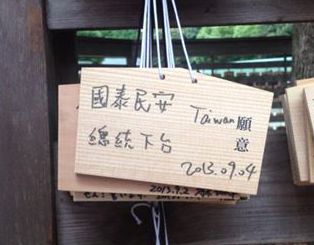 國泰民安 Taiwan
總統下台
願意
2013.09.04
2013.9.2